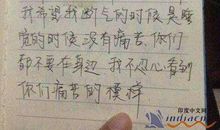 我希望我断气的时候是睡
觉的时候没有痛苦、你们
都不要在身边 我不忍心看到
你们痛苦的模样
印度中文网
indiacn